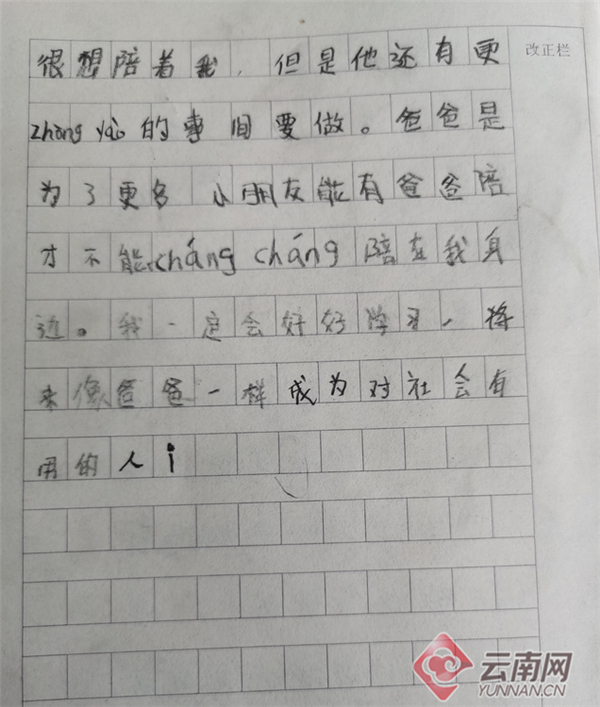 很想陪着我，但是他还有更
改正栏
zhòng yào的事间要做。爸爸是
为了更多 小朋友能有爸爸陪
才不能cháng cháng陪在我身
边。我一定会好好学习，将
来像爸爸一样成为对社会有
用的人！
云南网
YUNNAN.CN